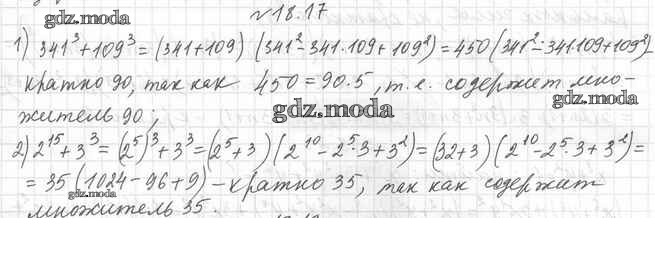 gdz.moda
№18.17
1) 341³+109³=(341+109)(341²-341·109+109²)=450(341²-341·109+109²)-
кратно 90, так как 450=90·5, т.е. содержит мно-
gdz.moda
жителъ 90;
gdz.moda
2) 2¹⁵+3³=(2⁵)³+3³=(2⁵+3)(2¹⁰-2⁵·3+3²)=(32+3)(2¹⁰-2⁵·3+3²)=
=35(1024-96+9)-кратно 35, так как содержит
gdz.moda
множитель 35.